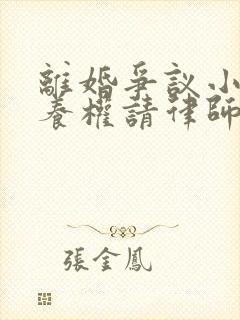 離婚爭議小
養權請律師
張金鳳